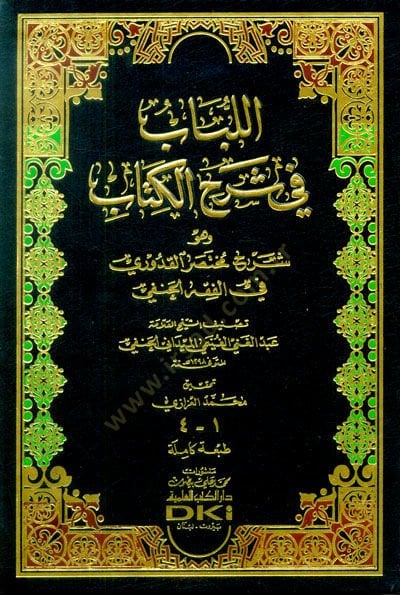 اللباب
في شرح الكتاب
وهو
شرح مختصر القدوري
في الفقه الحنفي
تصنيف الشيخ العلامة
عبد الغني الغنيمي الميداني الحنفي
المتوفى ١٢٩٨ هـ
تحقيق
محمد العزازي
١ - ٤
طبعة كاملة
منشورات
محمد علي بيضون
دار الكتب العلمية
DKi
بيروت - لبنان